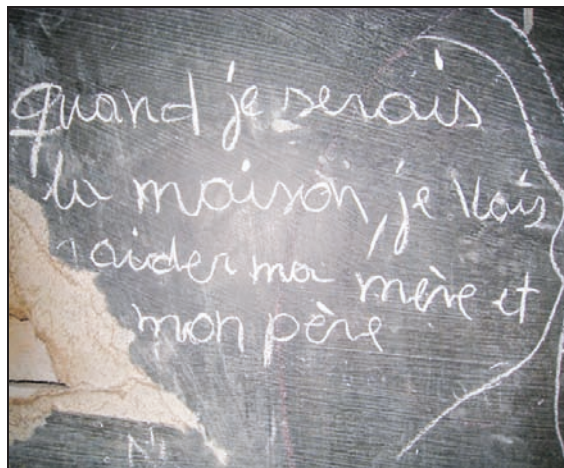 quand je serais
la maison, je vais
aider ma mère et
mon père